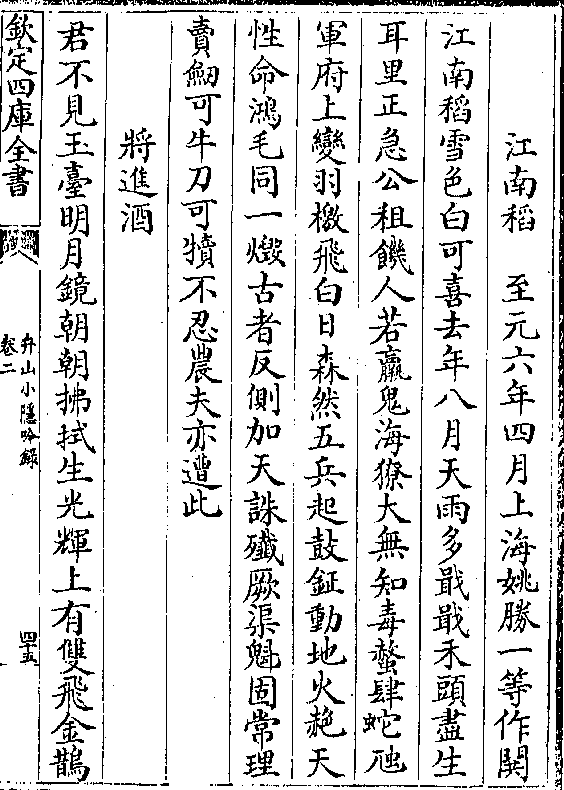 江南稻　至元六年四月上海姚勝一等作閧
江南稻雪色白可喜去年八月天雨多戢戢禾頭盡生
耳里正急公租饑人若羸鬼海獠大無知毒螫肆蛇虺
軍府上變羽檄飛白日森然五兵起鼓鉦動地火赩天
性命鴻毛同一燬古者反側加天誅殱厥渠魁固常理
賣劒可牛刀可犢不忍農夫亦遭此
將進酒
君不見玉臺明月鏡朝朝拂拭生光輝上有雙飛金鵲
欽定四庫全書
弁山小隱吟録
卷二
四十五